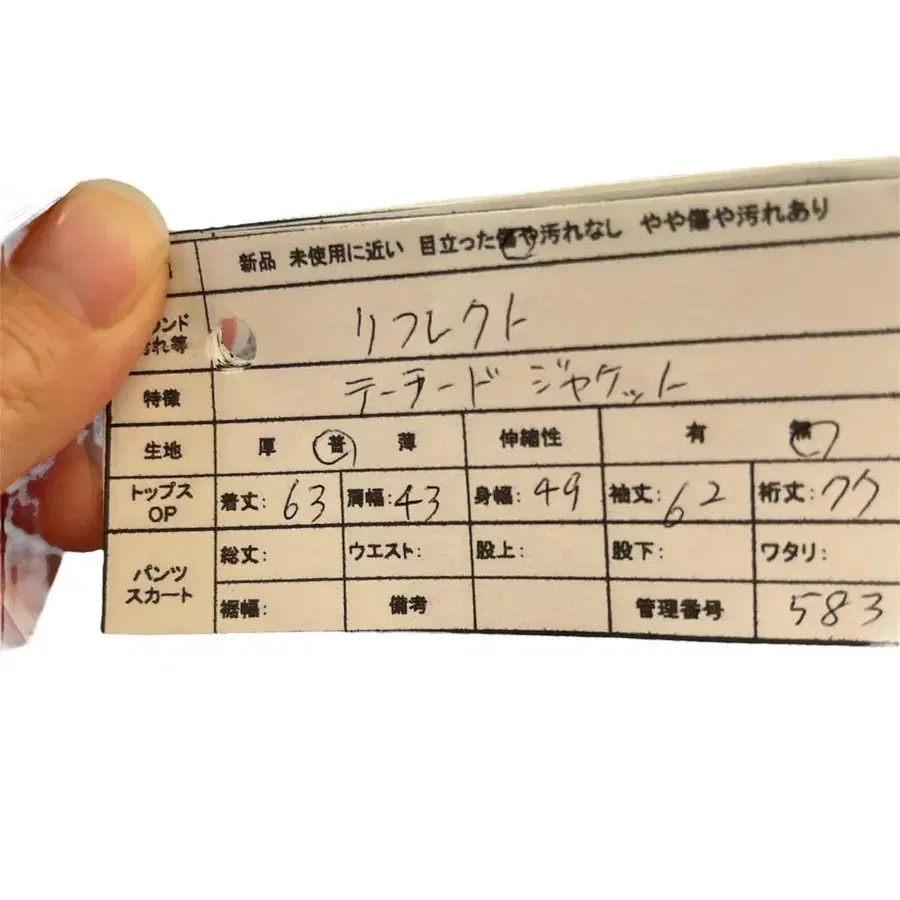 新品 未使用に近い 目立った傷や汚れなし やや傷や汚れあり
ンド
れ等 リフレクト
特徴 テーラード ジャケット
生地 厚 普 薄 伸縮性 有 無
トップス
OP 着丈: 63 肩幅: 43 身幅: 49 袖丈: 62 裄丈: 77
パンツ
スカート 総丈: ウエスト: 股上: 股下: ワタリ:
裾幅: 備考 管理番号 583